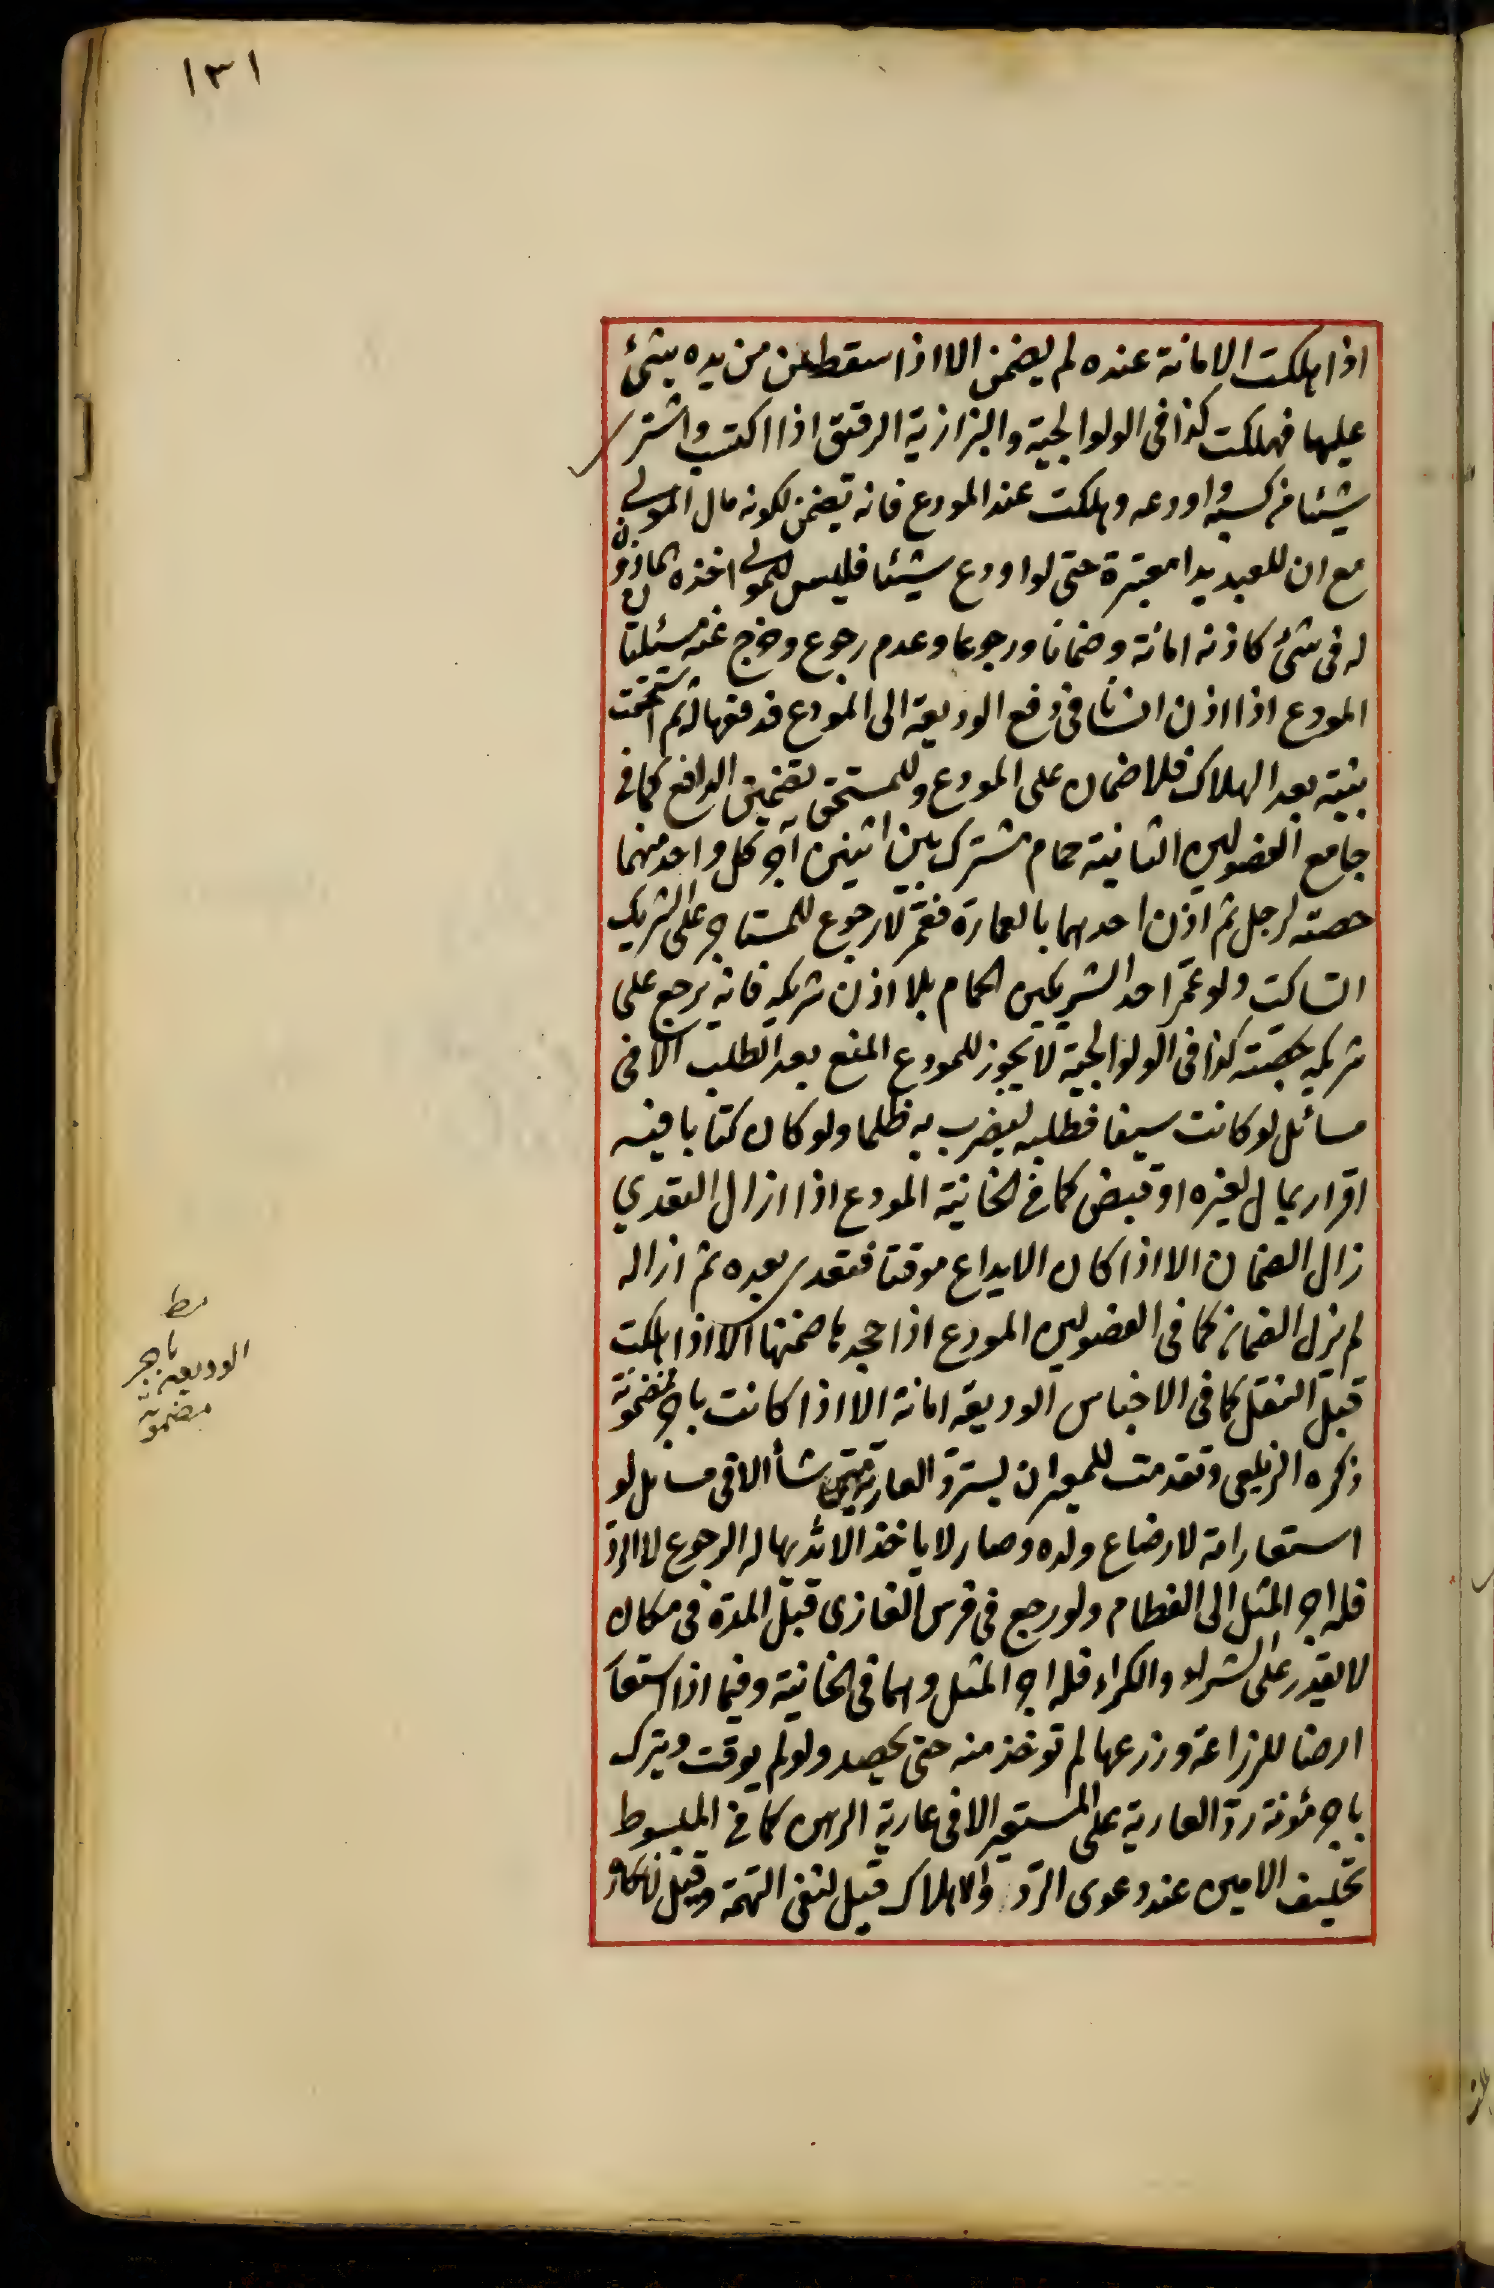 ١٣١
اذا هلكت الامانة عنده لم يضمن الا اذا سقط من يده شئ
عليها فهلكت كذا فى الولوالجية والبزازية الرقيق اذا اكتسب واشترى
شيئا من كسبه واودعه وهلكت عند المودع فانه يضمن لكونه مال المولى
مع ان للعبد يدا معتبرة حتى لو اودع شيئا فليس للمولى اخذه المأذون
له فى شئ كاذنه امانة وضمانا ورجوعا وعدم رجوع وخرج عنه مسئلتان
المودع اذا اذن انسانا فى دفع الوديعة الى المودع فدفعها له ثم استحقت
ببينة بعد الهلاك فلا ضمان على المودع وللمستحق تضمين الدافع كما فى
جامع الفصولين الثانية حمام مشترك بين اثنين آجر كل واحد منهما
حصته لرجل ثم اذن احدهما بالعمارة فعمّر لا رجوع للمستاجر على الشريك
الساكت ولو عمّر احد الشريكين الحمام بلا اذن شريكه فانه يرجع على
شريكه بحصته كذا فى الولوالجية لا يجوز للمودع المنع بعد الطلب الا فى
مسائل لو كانت سيفا فطلبه ليضرب به ظلما ولو كان كتابا فيه
اقرار بمال لغيره او قبض كما فى الخانية المودع اذا ازال التعدي
زال الضمان الا اذا كان الايداع موقتا فتعدى بعده ثم ازاله
لم يزل الضمان كما فى الفصولين المودع اذا جحدها ضمنها الا اذا هلكت
قبل النقل كما فى الاجناس الوديعة امانة الا اذا كانت باجر فمضمونة
ذكره الزيلعى وتقدمت للمعير ان يسترد العارية متى شأ الا فى مسائل لو
استعار امة لارضاع ولده وصار لا ياخذ الا ثديها له الرجوع لا الرد
فله اجر المثل الى الفطام ولو رجع فى فرس الغازى قبل المدة فى مكان
لا يقدر على الشراء والكراء فله اجر المثل وهما فى الخانية وفيما اذا استعار
ارضا للزراعة وزرعها لم توخذ منه حتى يحصد ولو لم يوقت ويترك
باجر مؤنة ردّ العارية على المستعير الا فى عارية الرهن كما فى المبسوط
تحليف الامين عند دعوى الردّ والهلاك قيل لنفى التهمة وقيل لانكاره
مط
الوديعة باجر
مضمونة